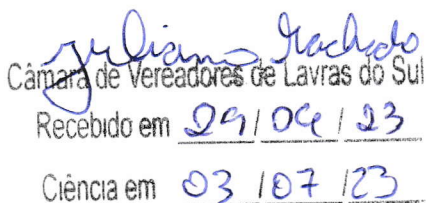 Juliano Machado
Câmara de Vereadores de Lavras do Sul
Recebido em 29/06/23
Ciência em 03/07/23